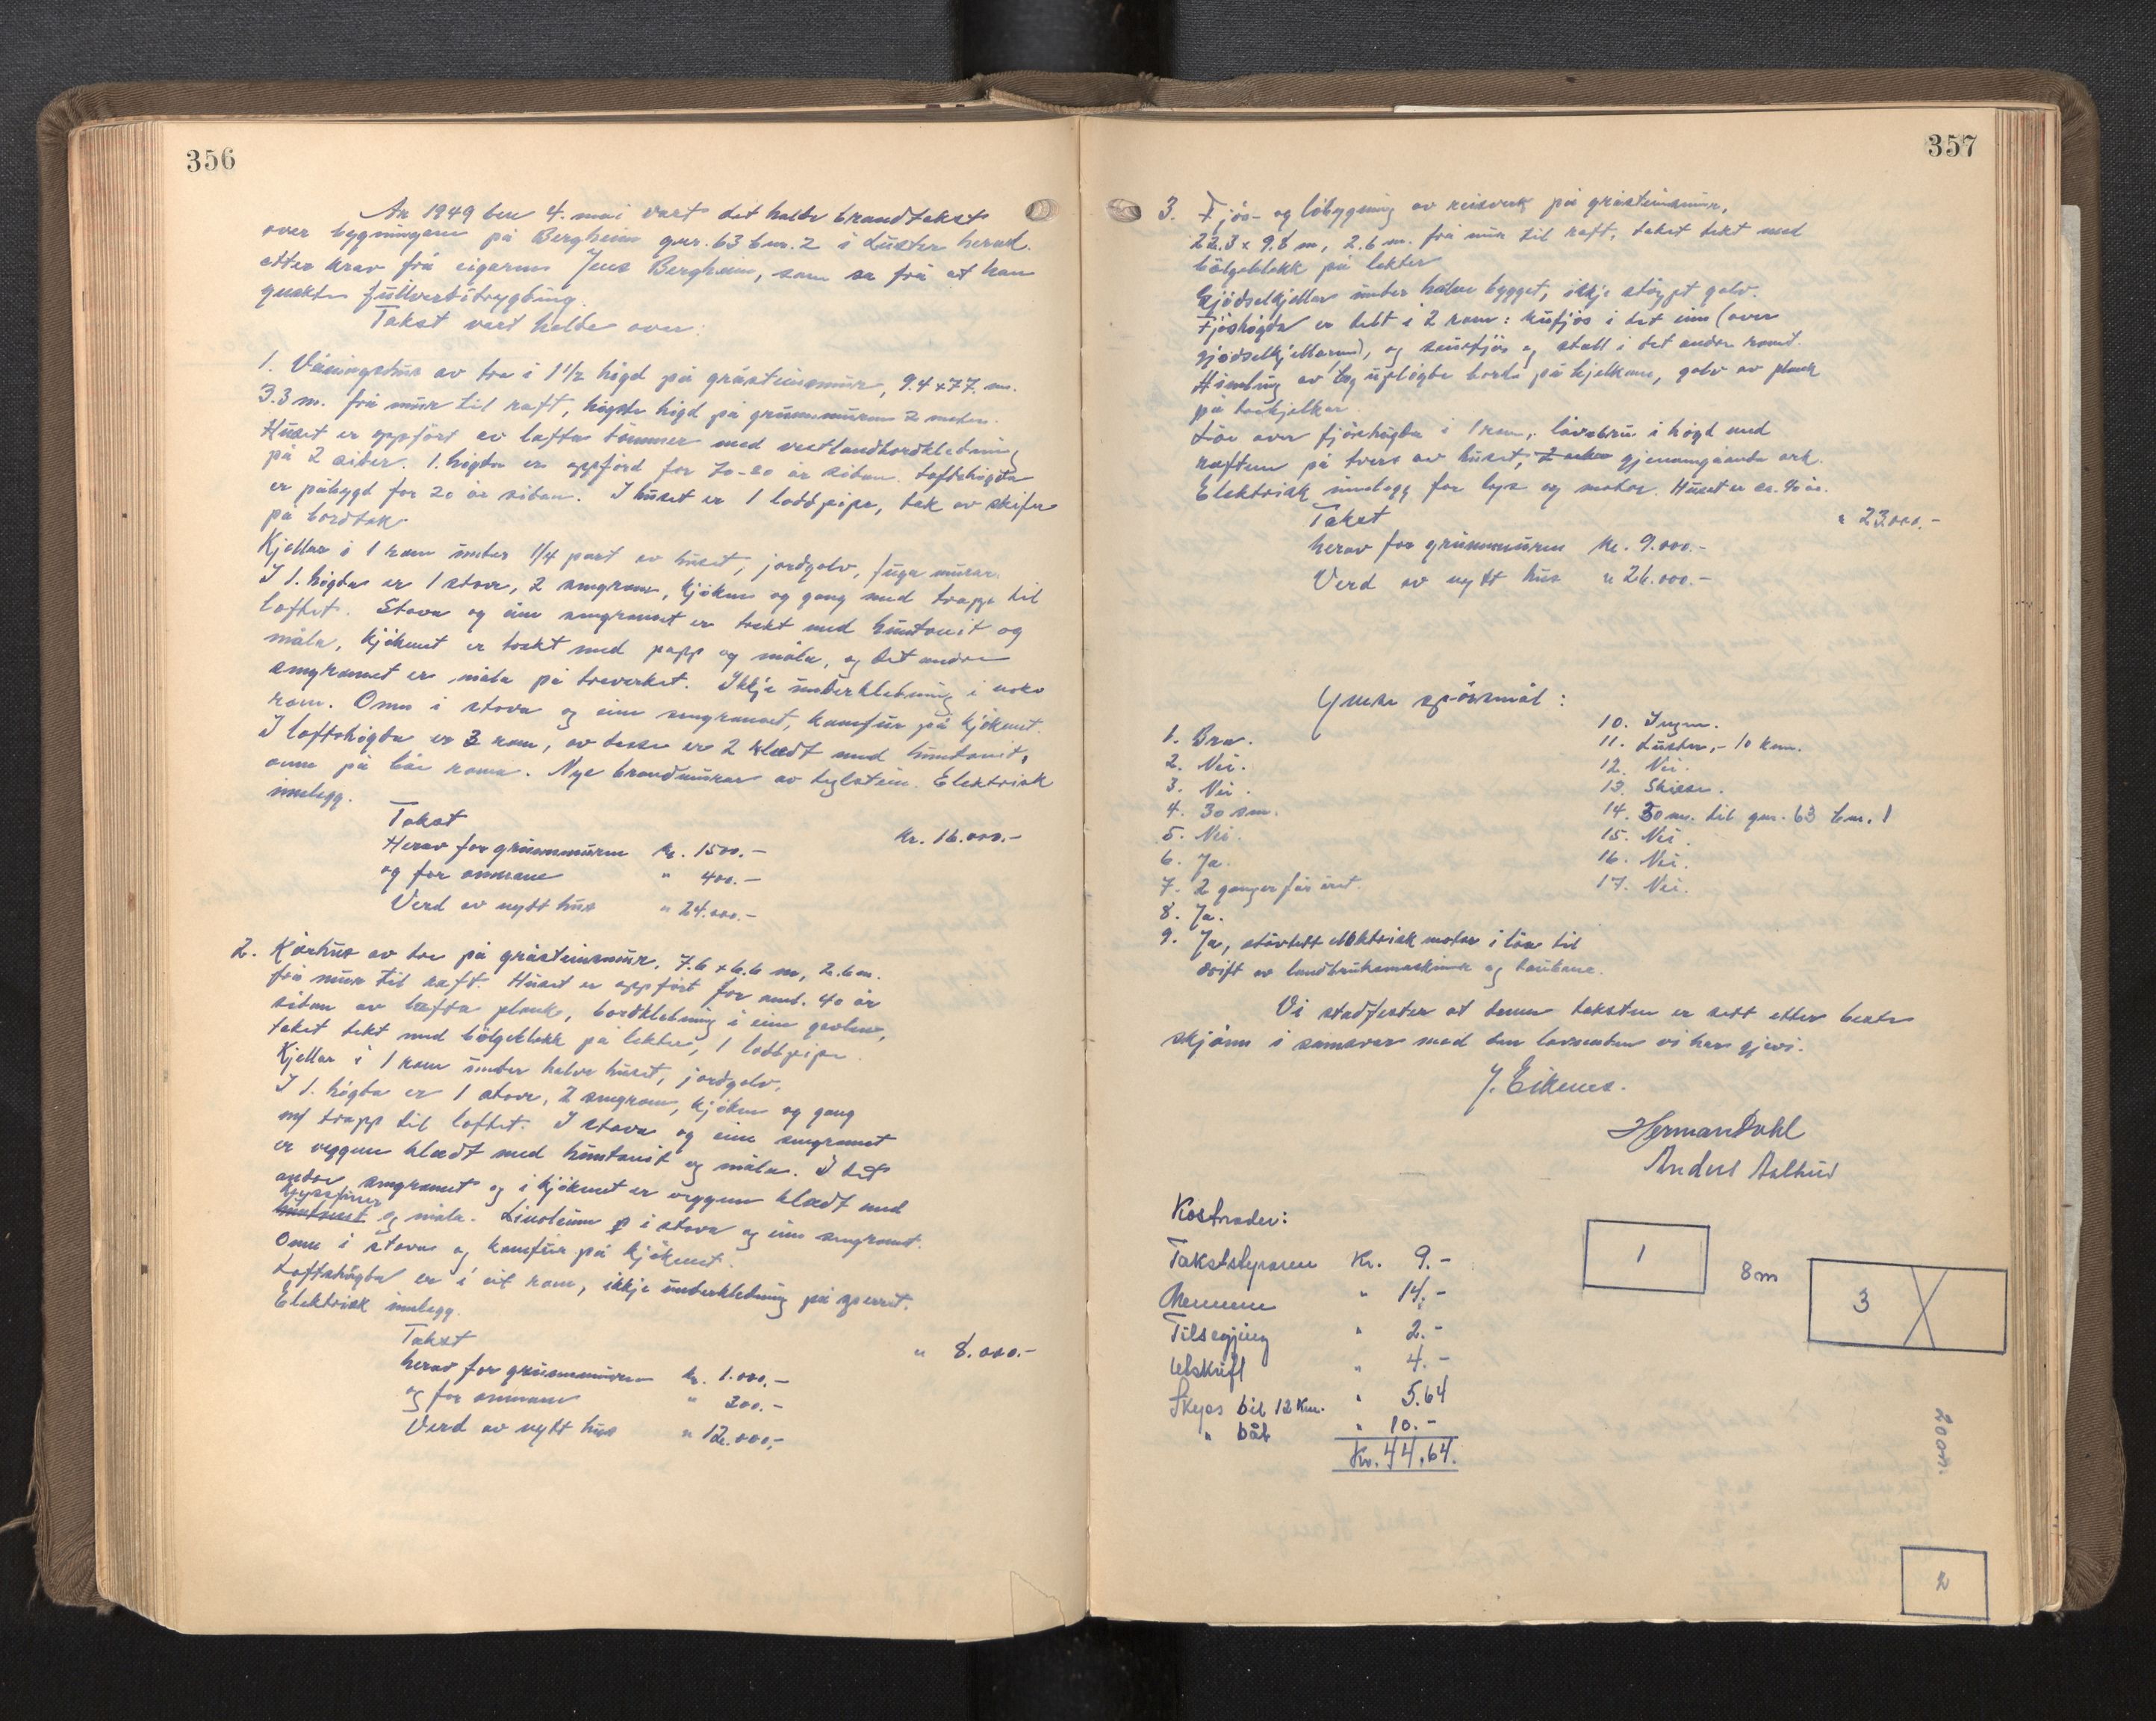 356
År 1949 den 4. mai vart det halde brandtakst
over bygningane på Bergheim gnr. 63 bnr. 2 i Luster herad.
etter krav frå eigaren Jens Bergheim, som sa frå at han
ynskte fullverditrygding.
Takst vart halde over:
1. Våningshus av tre i 1 1/2 högd på gråsteinsmur, 9.4 x 7.7. m.
3.3 m. frå mur til raft, högste högd på grunnmuren 2 meter.
Huset er oppfört av lafta tömmer med vestlandbordkledning
på 2 sider. 1. högda er oppförd for 70-80 år sidan. Loftshögda
er påbygd for 20 år sidan. I huset er 1 loddpipe, tak av skifer
på bordtak.
Kjellar i 1 rom under 1/4 part av huset, jordgolv, fuga murar.
I 1. högda er 1 stove, 2 sengrom, kjöken og gang med trapp til
loftet. Stova og eine sengromet er trekt med huntonit og
måla, kjökenet er trekt med papp og måla, og det andre
sengromet er måla på treverket. Ikkje underkledning i noko
rom. Omn i stova og eine sengromet, komfur på kjökenet.
I loftshögda er 3 rom, av desse er 2 kledt med huntonit,
omn på båe roma. Nye brandmurar av teglstein. Elektrisk
innlegg.
Takst kr. 16.000.-
Herav for grunnmuren kr. 1500.-
og for omnane " 400.-
Verd av nytt hus " 24.000.-
2. Kårhus av tre på gråsteinsmur, 7.6 x 6.6 m, 2.6 m.
frå mur til raft. Huset er oppfört for omd. 40 år
sidan av lafta plank, bordkledning i eine gavlen,
taket tekt med bölgeblekk på lekter, 1 loddpipe.
Kjellar i 1 rom under halve huset, jordgolv.
I 1. högda er 1 stove, 2 sengrom, kjöken og gang
m/ trapp til loftet. I stova og eine sengromet
er veggene kledt med huntonit og måla. I det
andre sengromet og i kjökenet er veggene kledt med
kryssfiner
huntonit og måla. Linoleum i stova og eine sengromet.
Omn i stova og komfur på kjökenet.
Loftshögda er i eit rom, ikkje underkledning på sperret.
Elektrisk innlegg.
Takst " 8.000.-
herav for grunnmuren kr. 1.000.-
og for omnane " 200.-
Verd av nytt hus " 12.000.-
357
3. Fjös- og löbygning av reisverk på gråsteinsmur,
22.3 x 9.8 m, 2.6 m. frå mur til raft, taket tekt med
bölgeblekk på lekter
Gjödselkjellar under halve bygget, ikkje stöypt golv.
Fjöshögda er delt i 2 rom: kufjös i det eine (over
gjödselkjellaren), og sauefjös og stall i det andre romet.
Himling av lag utlögde bord på bjelkane, golv av plank
på trebjelkar.
Löe over fjöshögda i 1 rom, låvebru i högd med
raften på tvers av huset, gjennomgåande ark.
Elektrisk innlegg for lys og motor. Huset er ca. 40 år.
Takst " 23.000.-
herav for grunnmuren kr. 9.000.-
Verd av nytt hus " 26.000.-
Ymse spörsmål:
1. Bra.
2. Nei.
3. Nei.
4. 30 sm.
5. Nei.
6. Ja.
7. 2 ganger for året.
8. Ja.
9. Ja, stövtett elektrisk motor i löa til
drift av landbruksmaskiner og taubane.
10. Ingen.
11. Luster, - 10 km.
12. Nei.
13. Skisse.
14. 30 m. til gnr. 63 bnr. 1
15. Nei.
16. Nei.
17. Nei.
Vi stadfester at denne taksten er sett etter beste
skjönn i samsvar med den lovnaden vi har gjevi.
J. Eikenes.
Herman Dahl
Anders
Kostnader:
Takststyraren Kr. 9.-
Mennene " 14.-
Tilsegjing " 2.-
Utskrift " 4.-
Skyss bil 12 Km. " 5.64
" båt " 10.-
Kr. 44.64.
1
8 m
3
200 m.
2